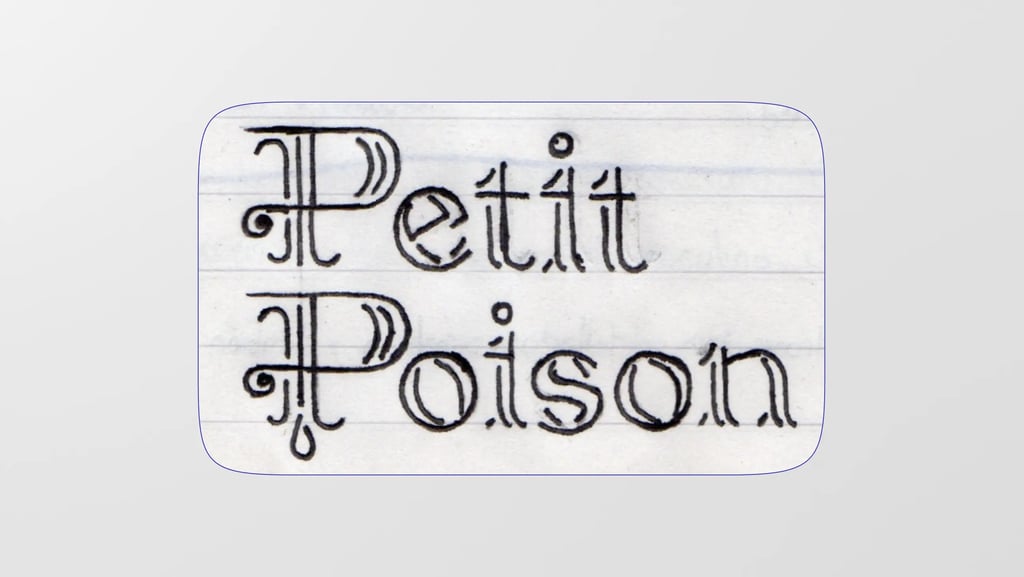 Petit
Poison